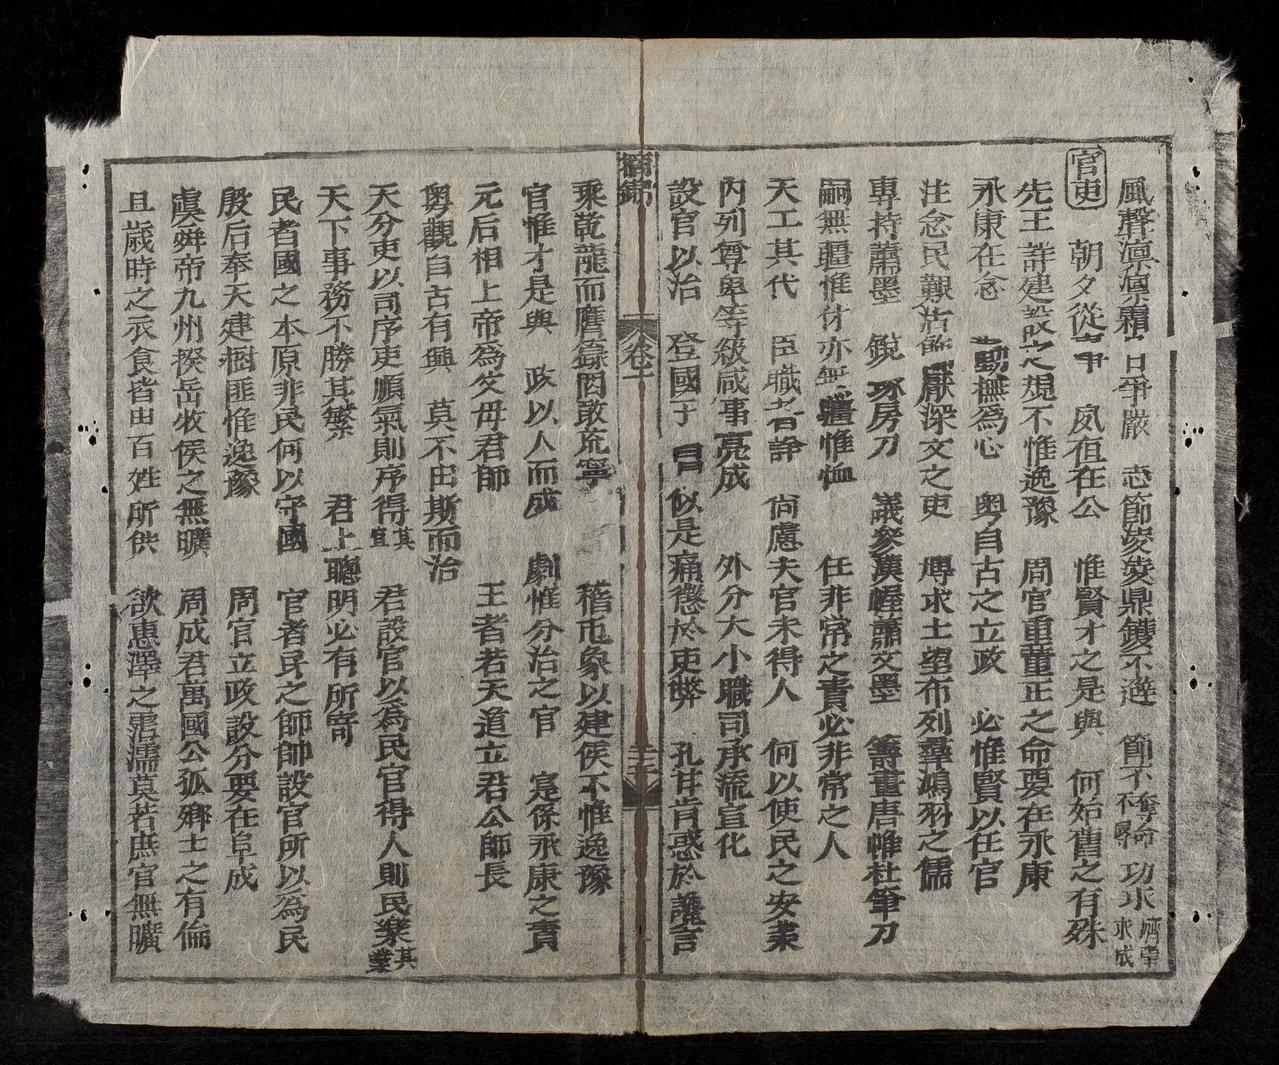 風聲凛凛霜日爭嚴　志節凌凌鼎鑊不避　節不奪命不辱　功求濟室求成
官吏　朝夕從事　夙夜在公　惟賢才之是與　何始舊之有殊
先王詳建設之規不惟逸豫　周官重董正之命要在永康
永康在念　勤撫為心　粤自古之立政　必惟賢以任官
注念民艱　厭深文之吏　專求士望布列羣鴻羽之儒
專持蕭墨　銳琢房刀　議參漢幄蕭文墨　籌畫唐帷杜筆刀
嗣無疆惟休亦無疆惟恤　任非常之責必非常之人
天工其代　臣職　尚慮夫官未得人　何以使民之安業
內列尊卑等級咸事亮成　外分大小職司承流宣化
設官以治　登國于　似是痛懲於吏弊　孔甘肯惑於讒言
摘錦
卷二
乘乾龍而膺籙罔敢荒寧　稽市象以建侯不惟逸豫
官惟才是與　政以人而成　劇惟分治之官　寔係永康之責
元后相上帝為父母君師　王者若天道立君公師長
粤觀自古有興　莫不由斯而治
天分吏以司序吏順氣則序得其宜　君設官以為民官得人則民樂其業
天下事務不勝其繁　君上聰明必有所寄
民者國之本原非民何以守國　官者民之師帥設官所以為民
殷后奉天建樹匪惟逸豫　周官立政設分要在阜成
虞舜帝九州揆岳牧侯之無曠　周成君萬國公孤卿士之有倫
且歲時之衣食皆由百姓所供　欲惠澤之霑濡莫若庶官無曠